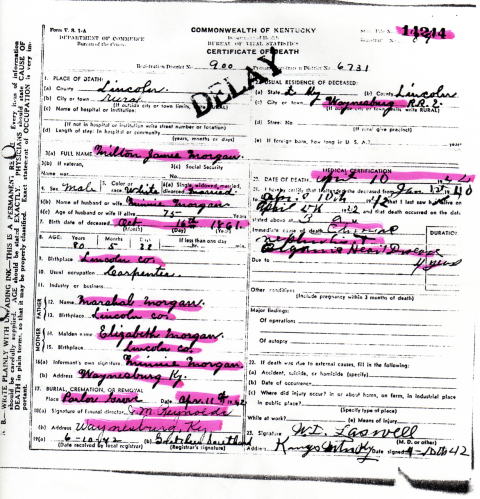 Form V. S. 1-A
COMMONWEALTH OF KENTUCKY
14244
DEPARTMENT OF COMMERCE
Bureau of the Census
BUREAU OF VITAL STATISTICS
CERTIFICATE OF DEATH
Registration District No. 900
District No. 6731
DELAY
1. PLACE OF DEATH:
(a) County Lincoln
(b) City or town Rural
(If outside city or town limits, RURAL)
(c) Name of hospital or institution:
(If not in hospital or institution write street number or location)
(d) Length of stay: In hospital or community
(years, months or days)
2. USUAL RESIDENCE OF DECEASED:
(a) State Ky (b) County Lincoln
(c) City or town Waynesburg R.R.2.
(d) Street No.
(If rural give precinct)
(e) If foreign born, how long in U. S. A.?
3(a) FULL NAME Milton Jamie Morgan
3(b) If veteran,
Name war
3(c) Social Security
No.
4. Sex Male 5. Color or race White 6(a) Single, widowed, married, Married
6(b) Name of husband or wife Minnie Morgan
6(c) Age of husband or wife if alive 75 Years
7. Birth date of deceased Oct 16th 1861
(Month) (Day) (Year)
8. AGE: Years Months Days If less than one day
80 5
hr. min.
9. Birthplace Lincoln co.
10. Usual occupation Carpenter
11. Industry or business
FATHER
12. Name Marshab Morgan.
13. Birthplace Lincoln co.
MOTHER
14. Maiden name Elizabeth Morgan.
15. Birthplace Lincoln co.
16(a) Informant's own signature Minnie Morgan
(b) Address Waynesburg Ky.
17. BURIAL, CREMATION, OR REMOVAL
Place Date Apr. 11th 1942
18(a) Signature of funeral director J. M. Reynolds
(b) Address Waynesburg, Ky
19(a) 6-10-42 (b)
(Date received by local registrar) (Registrar's signature)
MEDICAL CERTIFICATION
20. DATE OF DEATH April 10
21. I hereby certify that I attended the deceased from Jan 12th 40
April 10th 1942 that I last saw h alive on
and that death occurred on the date
stated above at
Immediate cause of death Chronic
DURATION
Nephritis &
Organic Heart Disease
4 years
Other conditions
(Include pregnancy within 3 months of death)
Major findings:
Of operations
Of autopsy
22. If death was due to external causes, fill in the following:
(a) Accident, suicide, or homicide (specify)
(b) Date of occurrence
(c) Where did injury occur? In or about home, on farm, in industrial place
in public place?
(Specify type of place)
While at work? (e) Means of injury
23. Signature W. J. Laswell
(M. D. or other)
Address Kings Mtn Ky Date signed
N. B. WRITE PLAINLY WITH UNFADING INK—THIS IS A PERMANENT RECORD. Every item of information
should be carefully supplied. AGE should be stated EXACTLY. PHYSICIANS should state CAUSE OF
DEATH in plain terms, so that it may be properly classified. Exact statement of OCCUPATION is very im-
portant.